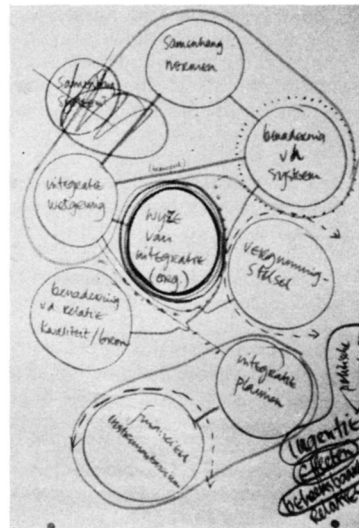 Samenhang
normen
Samenhang
System?
benadering
vd
systeem
(beinvloed)
integratie
wetgeving
wijze
van
integratie
(org.)
vergunning-
stelsel
benadering
vd relatie
kwaliteit/bron
integratie
plannen
financiële
instrumentarium
politieke
effecten
relatie